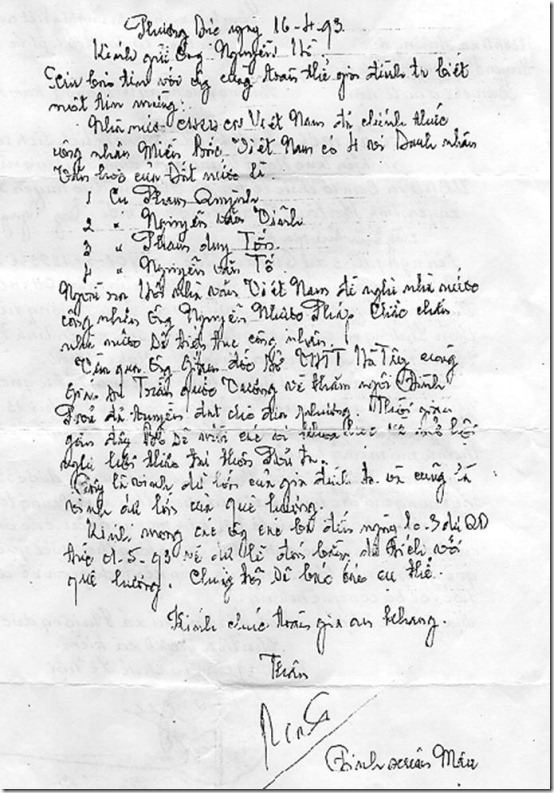 Phượng Dực ngày 16-4-93.
Kính gửi ông Nguyễn Hồ
báo tin với ông cùng toàn thể gia đình ta biết
một tin mừng:
Nhà nước CHXHCN Việt Nam đã chính thức
công nhận Miền Bắc Việt Nam có 4 vị Danh nhân
Văn hoá của Đất nước là
1 Cụ Phạm Quỳnh
2 " Nguyễn văn Vĩnh
3 " Phạm duy Tốn.
4 " Nguyễn văn Tố.
Ngoài ra Hội nhà văn Việt Nam đề nghị nhà nước
công nhận ông Nguyễn Nhược Pháp. Chắc chắn
nhà nước sẽ tiếp tục công nhận.
Vừa qua ông Giám đốc Sở VHTT Hà Tây cùng
Giáo sư Trần quốc Vượng về thăm ngôi Đình
đã duyệt cho địa phương. Thời gian
gần đây sẽ mời các vị mở hội
nghị hội thảo tại thôn
là vinh dự lớn của gia đình ta và cũng là
vinh dự lớn của quê hương.
Kính mong các ông các bà đến ngày 10-3 dư
tức 01-5-93 về dự lễ đón bằng di tích với
quê hương. Chúng tôi sẽ báo cáo cụ thể.
Kính chúc toàn gia an khang.
Thân